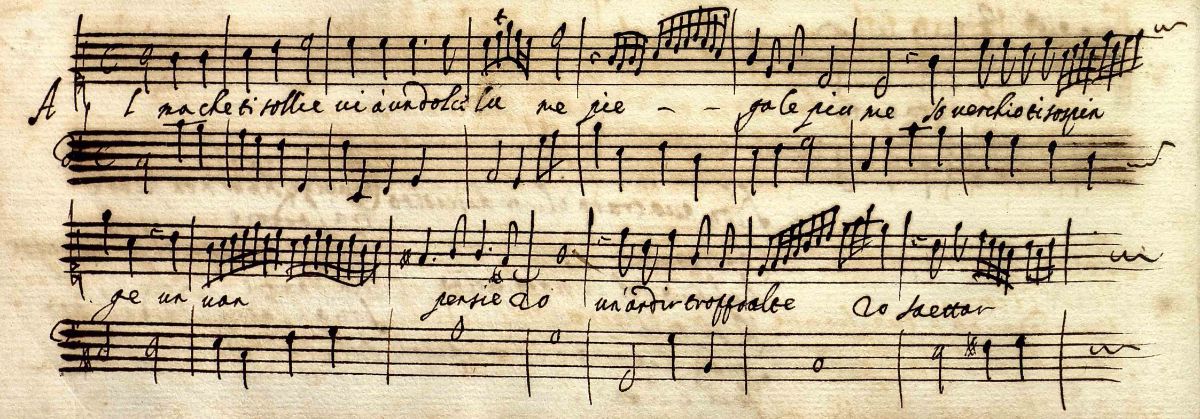 Al ma che ti sollie vi à un dolci lu me pie - - ga le piu me so verchio ti sospin
ge un van pensie ro un'ardir troppo alte ro saettar